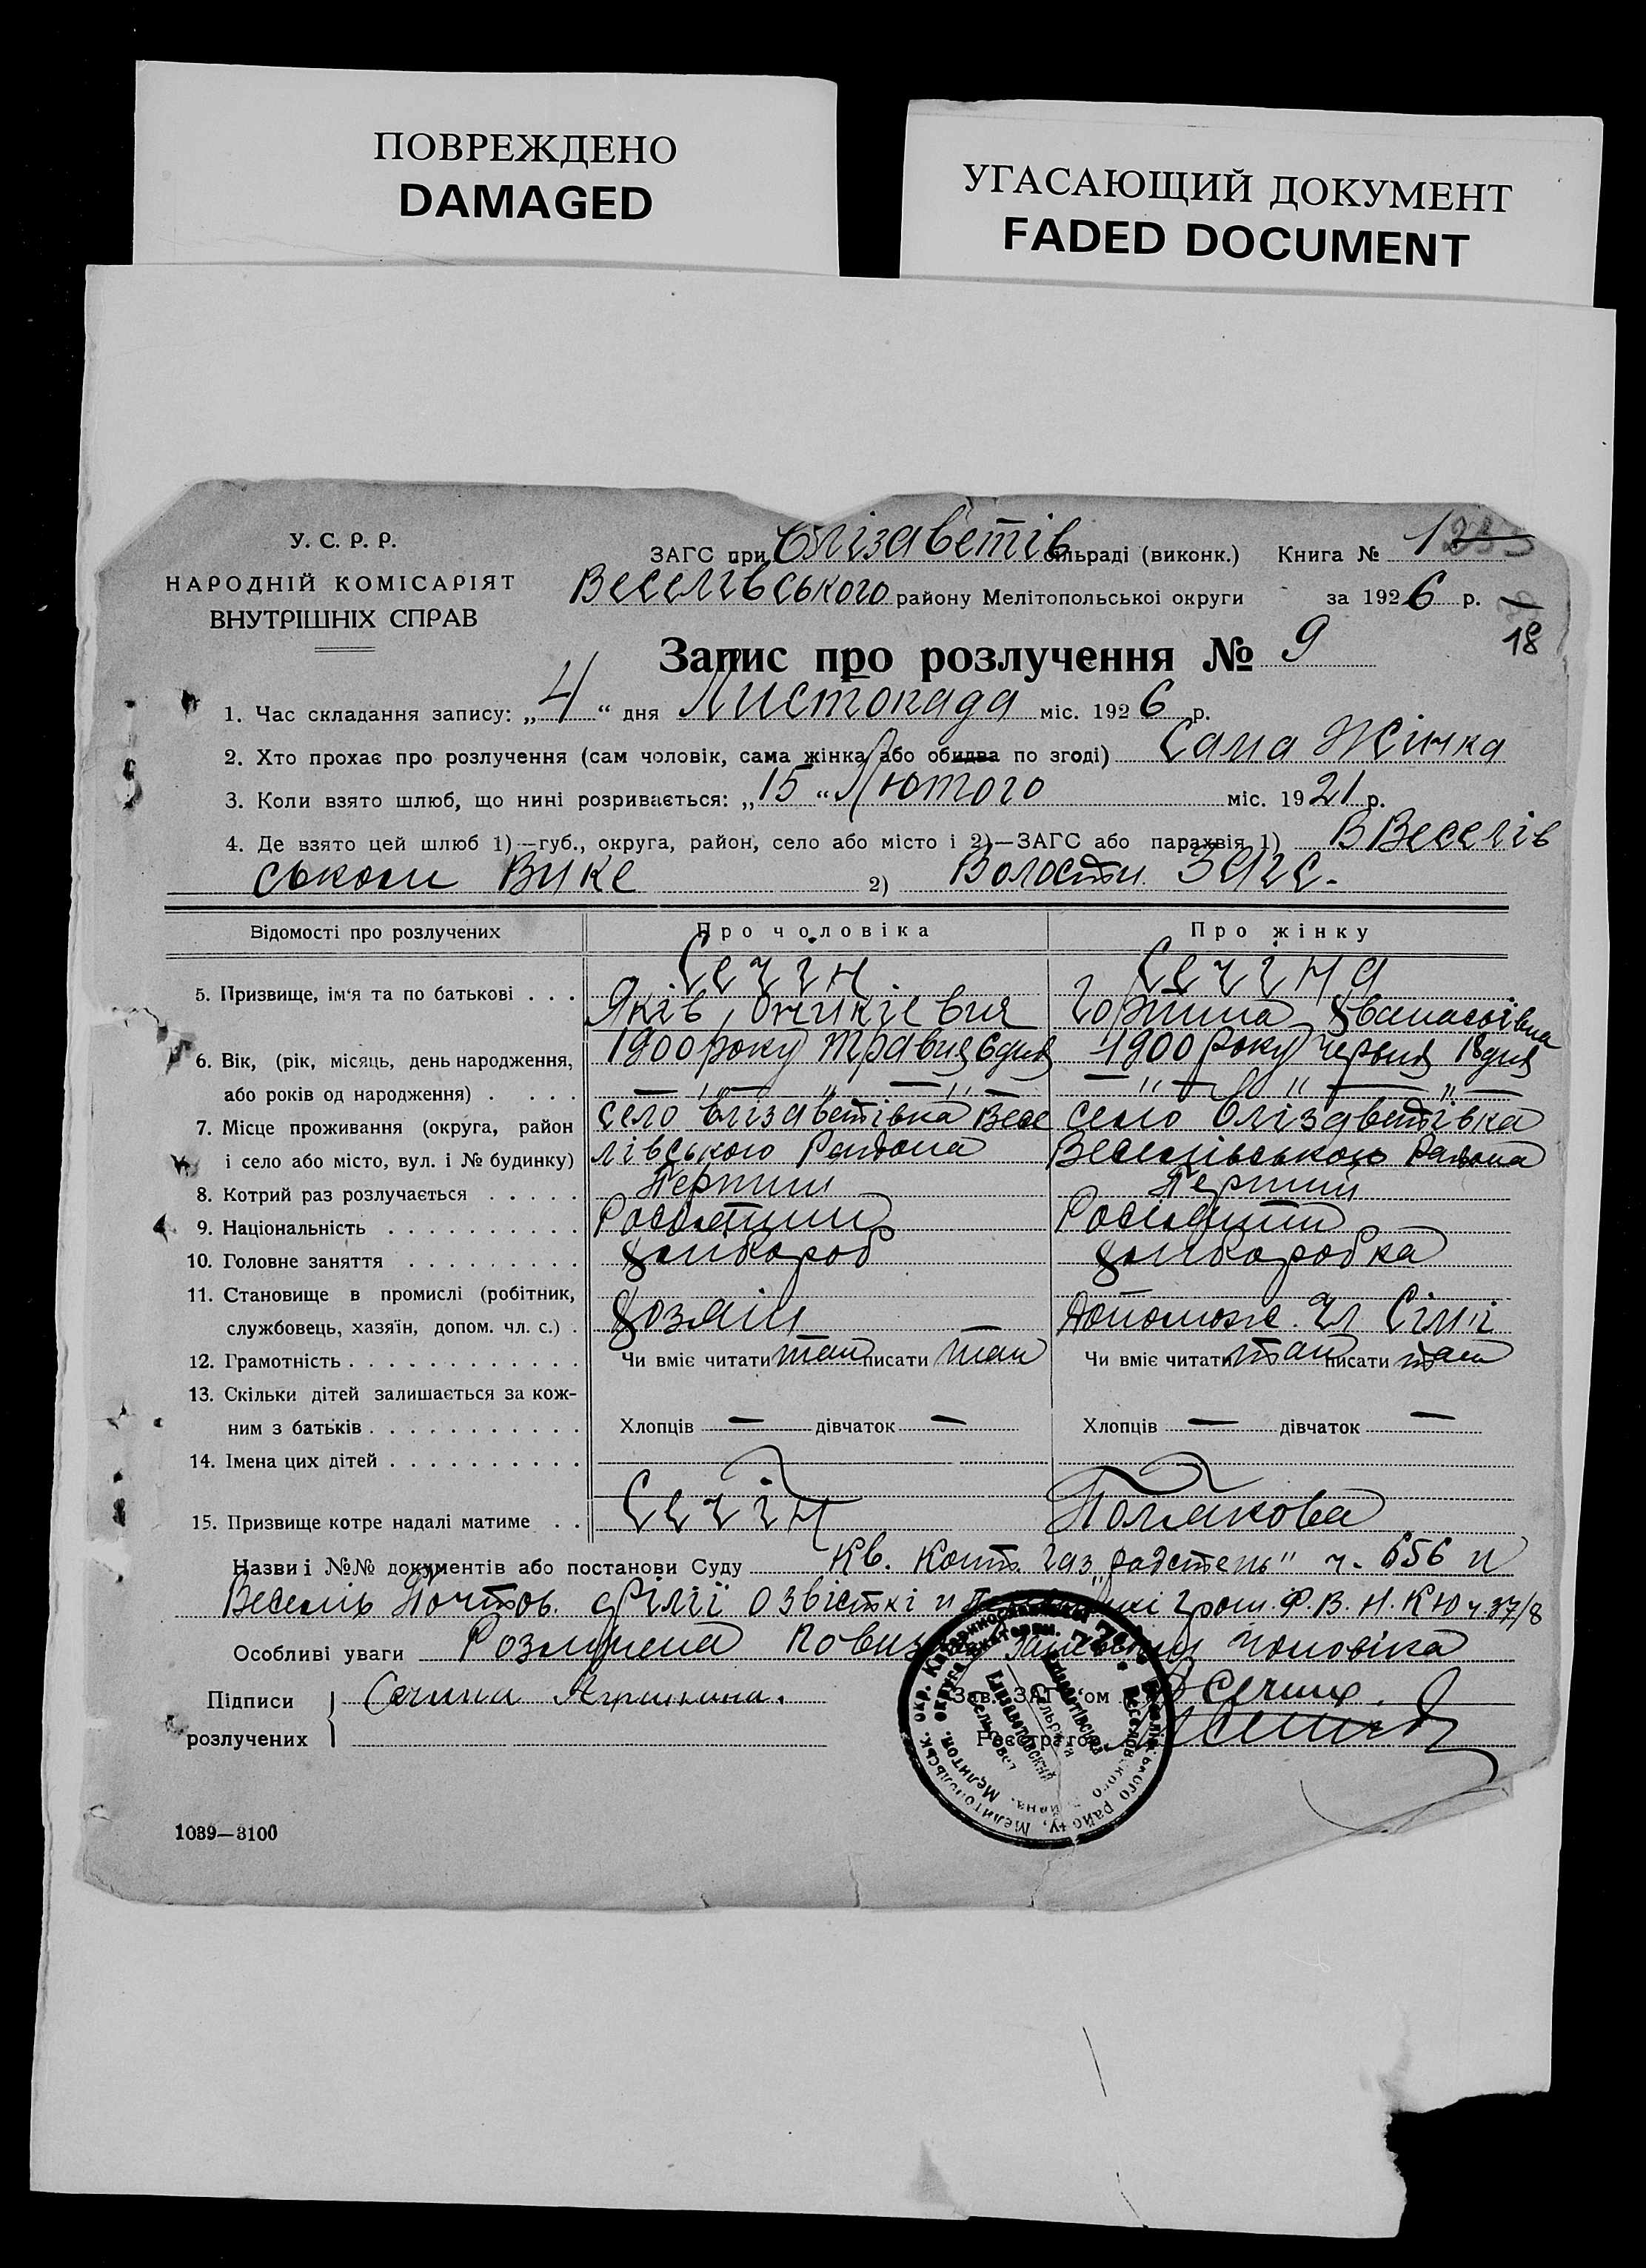 ПОВРЕЖДЕНО
DAMAGED
УГАСАЮЩИЙ ДОКУМЕНТ
FADED DOCUMENT
У. С. Р. Р.
НАРОДНІЙ КОМІСАРІЯТ
ВНУТРІШНІХ СПРАВ
ЗАГС при Єлізаветів сільраді (виконк.) Книга № 1
Веселівського району Мелітопольськоі округи за 1926 р.
18
Запис про розлучення № 9
1. Час складання запису: „4“ дня Листопада міс. 1926 р.
2. Хто прохає про розлучення (сам чоловік, сама жінка або обидва по згоді) Сама Жінка
3. Коли взято шлюб, що нині розривається: „15“ Лютого міс. 1921 р.
4. Де взято цей шлюб 1)—губ., округа, район, село або місто і 2)—ЗАГС або парахвія 1) В Веселів
ськом 2) Волости ЗАГС.
Відомості про розлучених Про чоловіка Про жінку
5. Призвище, ім‘я та по батькові . . . Сечін Сечіна
Яків
6. Вік, (рік, місяць, день народження, 1900 року травня 6 дня 1900 року червня 18 дня
або років од народження) . . . . .
7. Місце проживання (округа, район село Елізаветівка Весе село Єлізаветівка
і село або місто, вул. і № будинку) лівського Района Веселівського Района
8. Котрий раз розлучається . . . . . Перший Перший
9. Національність . . . . . . . . . .
10. Головне заняття . . . . . . . . . хлібороб хліборобка
11. Становище в промислі (робітник,
службовець, хазяїн, допом. чл. с.) . хозяїн допомож. Чл Сімї
12. Грамотність . . . . . . . . . . . . Чи вміє читати так писати так Чи вміє читати так писати так
13. Скільки дітей залишається за кож-
ним з батьків . . . . . . . . . . . Хлопців — дівчаток — Хлопців — дівчаток —
14. Імена цих дітей . . . . . . . . . .
15. Призвище котре надалі матиме . . Сечін Полякова
Назви і №№ документів або постанови Суду Кв. Конт. Газ „Радстепь" ч. 656 и
Веселів Почтов. філії
Особливі уваги чоловіка
Підписи
розлучених
Сечина
Зав. ЗАГС‘ом Сечин
Реєстратор
1039—3100